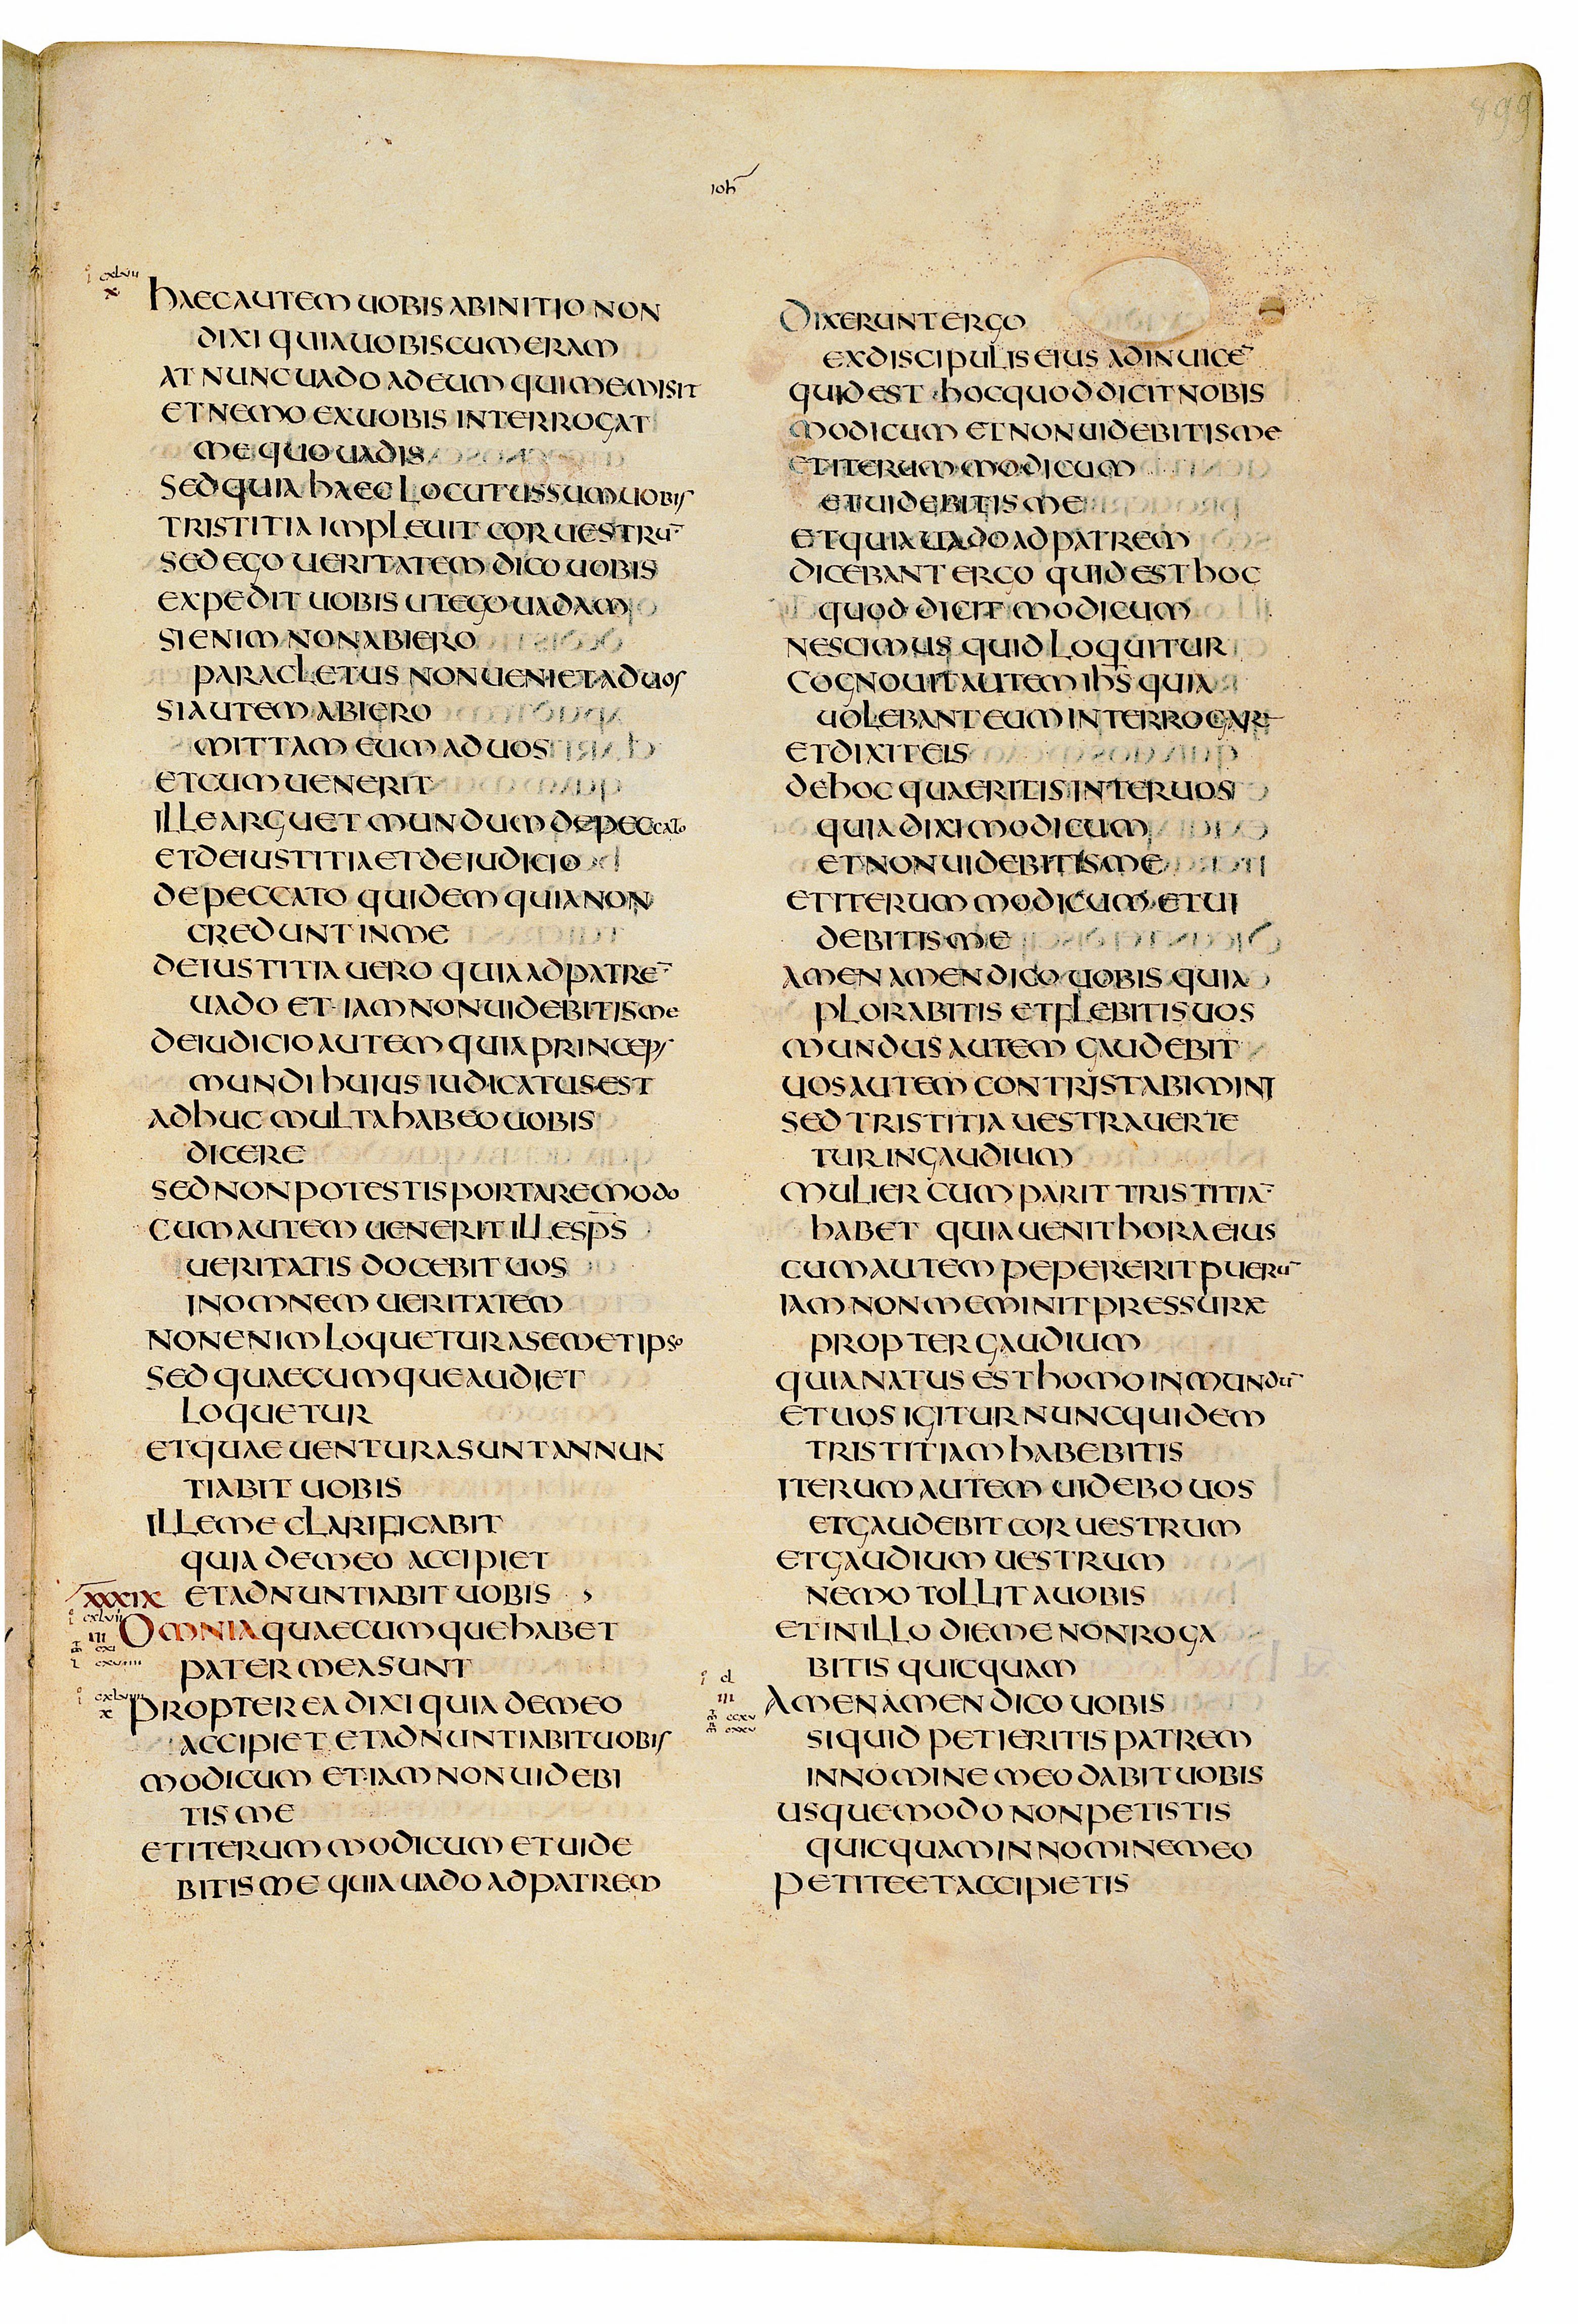 899
ioh̅
i cxlvii
x
HAEC AUTEM UOBIS AB INITIO NON
DIXI QUIA UOBISCUM ERAM
AT NUNC UADO AD EUM QUI ME MISIT
ET NEMO EX UOBIS INTERROGAT
ME QUO UADIS
SED QUIA HAEC LOCUTUS SUM UOBIS
TRISTITIA IMPLEUIT COR UESTRU̅
SED EGO UERITATEM DICO UOBIS
EXPEDIT UOBIS UT EGO UADAM
SI ENIM NON ABIERO
PARACLETUS NON UENIET AD UOS
SI AUTEM ABIERO
MITTAM EUM AD UOS
ET CUM UENERIT
ILLE ARGUET MUNDUM DE PECCATO
ET DE IUSTITIA ET DE IUDICIO
DE PECCATO QUIDEM QUIA NON
CREDUNT IN ME
DE IUSTITIA UERO QUIA AD PATRE̅
UADO ET IAM NON UIDEBITIS ME
DE IUDICIO AUTEM QUIA PRINCEPS
MUNDI HUIUS IUDICATUS EST
ADHUC MULTA HABEO UOBIS
DICERE
SED NON POTESTIS PORTARE MODO
CUM AUTEM UENERIT ILLE SP̅S
UERITATIS DOCEBIT UOS
IN OMNEM UERITATEM
NON ENIM LOQUETUR A SEMETIPSO
SED QUAECUMQUE AUDIET
LOQUETUR
ET QUAE UENTURA SUNT ANNUN
TIABIT UOBIS
ILLE ME CLARIFICABIT
QUIA DE MEO ACCIPIET
XXXIX ET ADNUNTIABIT UOBIS
i cxlviii
iii
OMNIA QUAECUMQUE HABET
PATER MEA SUNT
i cxlviiii
x
PROPTEREA DIXI QUIA DE MEO
ACCIPIET ET ADNUNTIABIT UOBIS
MODICUM ET IAM NON UIDEBI
TIS ME
ET ITERUM MODICUM ET UIDE
BITIS ME QUIA UADO AD PATREM
DIXERUNT ERGO
EX DISCIPULIS EIUS AD INUICE̅
QUID EST HOC QUOD DICIT NOBIS
MODICUM ET NON UIDEBITIS ME
ET ITERUM MODICUM
ET UIDEBITIS ME
ET QUIA UADO AD PATREM
DICEBANT ERGO QUID EST HOC
QUOD DICIT MODICUM
NESCIMUS QUID LOQUITUR
COGNOUIT AUTEM IH̅S QUIA
UOLEBANT EUM INTERROGARE
ET DIXIT EIS
DE HOC QUAERITIS INTER UOS
QUIA DIXI MODICUM
ET NON UIDEBITIS ME
ET ITERUM MODICUM ET UI
DEBITIS ME
AMEN AMEN DICO UOBIS QUIA
PLORABITIS ET FLEBITIS UOS
MUNDUS AUTEM GAUDEBIT
UOS AUTEM CONTRISTABIMINI
SED TRISTITIA UESTRA UERTE
TUR IN GAUDIUM
MULIER CUM PARIT TRISTITIA̅
HABET QUIA UENIT HORA EIUS
CUM AUTEM PEPERERIT PUERU̅
IAM NON MEMINIT PRESSURAE
PROPTER GAUDIUM
QUIA NATUS EST HOMO IN MUNDU̅
ET UOS IGITUR NUNC QUIDEM
TRISTITIAM HABEBITIS
ITERUM AUTEM UIDEBO UOS
ET GAUDEBIT COR UESTRUM
ET GAUDIUM UESTRUM
NEMO TOLLIT A UOBIS
ET IN ILLO DIE ME NON ROGA
BITIS QUICQUAM
i cl
iii
AMEN AMEN DICO UOBIS
SI QUID PETIERITIS PATREM
IN NOMINE MEO DABIT UOBIS
USQUE MODO NON PETISTIS
QUICQUAM IN NOMINE MEO
PETITE ET ACCIPIETIS